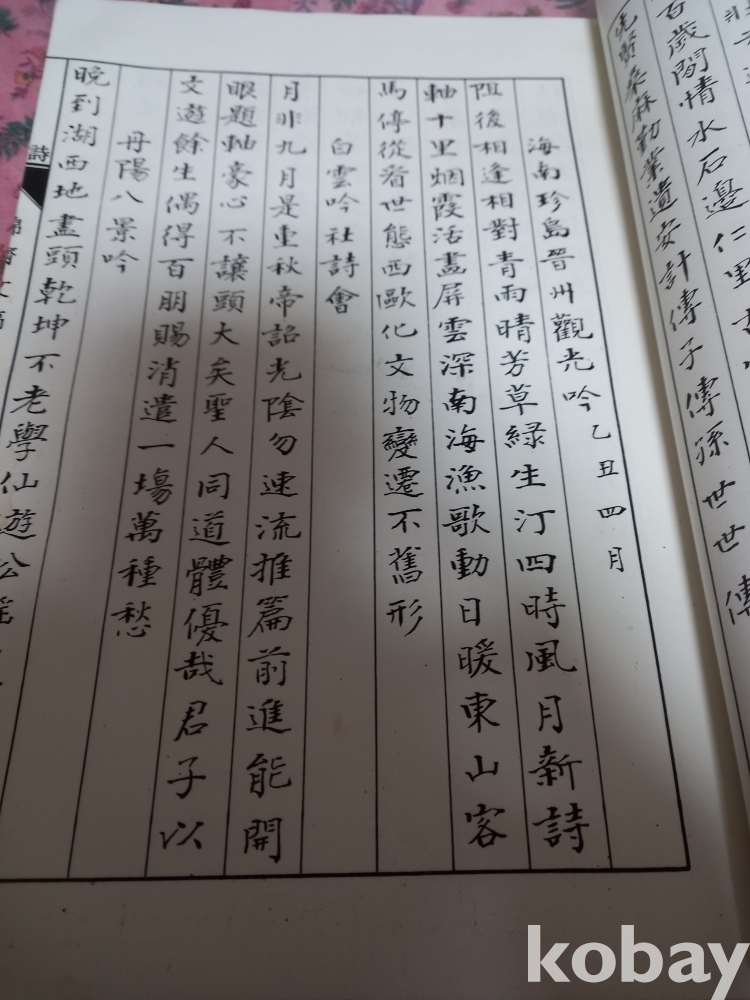 百歲閒情水石邊仁里
先賢桑麻勤業遺安計傳子傳孫世世傳
海南珍島晉州觀光吟乙丑四月
阻後相逢相對青雨晴芳草綠生汀四時風月新詩
軸十里烟霞活畫屏雲深南海漁歌動日暖東山客
馬停從看世態西歐化文物變遷不舊形
白雲吟社詩會
月非九月是重秋帝詔光陰勿速流推篇前進能開
眼題軸豪心不讓頭大矣聖人同道體優哉君子以
文遊餘生偶得百朋賜消遣一場萬種愁
丹陽八景吟
晚到湖西地盡頭乾坤不老學仙遊
詩
kobay